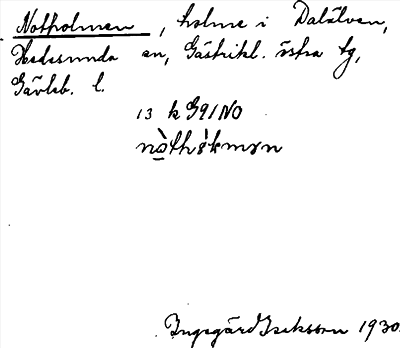 Notholmen, holme i Dalälven,
Hedesunda sn, Gästrikl. östra tg,
Gävleb. l.
13 k G91NO
nò̱thòḱmɘn
Ingegärd Isaksson 1930.